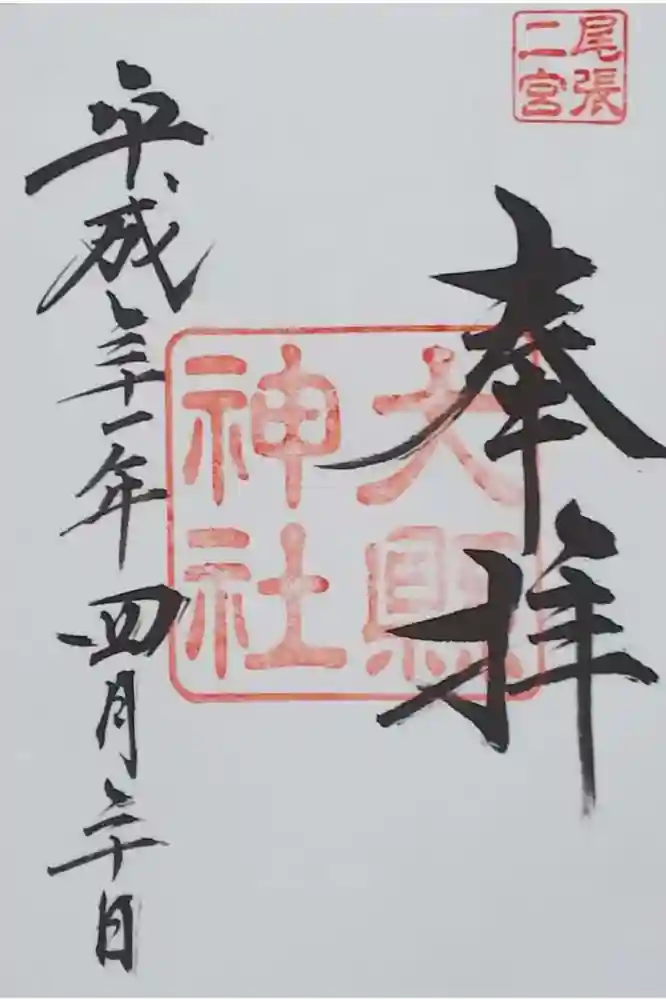 尾張
二宮
奉拝
大縣
神社
平成三十一年四月二十日